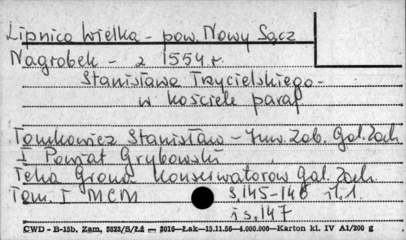 Lipnica Wielka - pow. Nowy Sącz
Nagrobek - z 1554 r.
Stanisława Trzycielskiego -
w kościele paraf
Tomkowicz Stanisław - Inw. Zab. Gal. Zach.
I Powiat Grybowski
Teka Grona Konserwatorów Gal. Zach.
Tom. I MCM s. 145-146 il. 1.
i s. 147
CWD - B-15b. Zam. 5823/S/Łż — 3016—Łak—15.11.56—4.000.000—Karton kl. IV A1/200 g